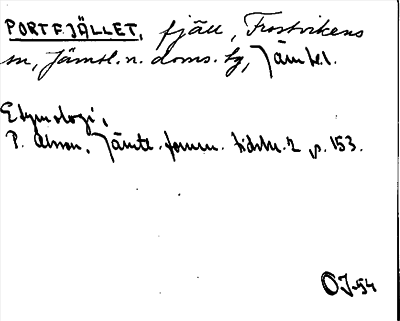 PORTFJÄLLET, fjäll, Frostvikens
sn, Jämtl. n. doms. lg, Jämtl.
Etymologi:
P. Olsson, Jämtl. fornm. tidskr. 2 p. 153.
OJ-54